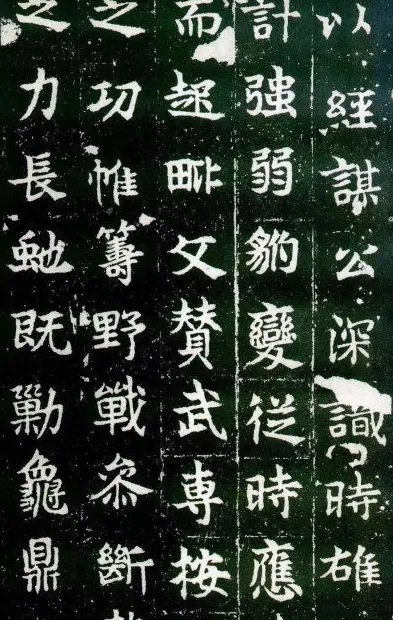 以經謀公深識時雄
計強弱豹變従時應
而起毗文賛武専按
之功惟籌野戰叅斷
之力長虵既勦龜鼎